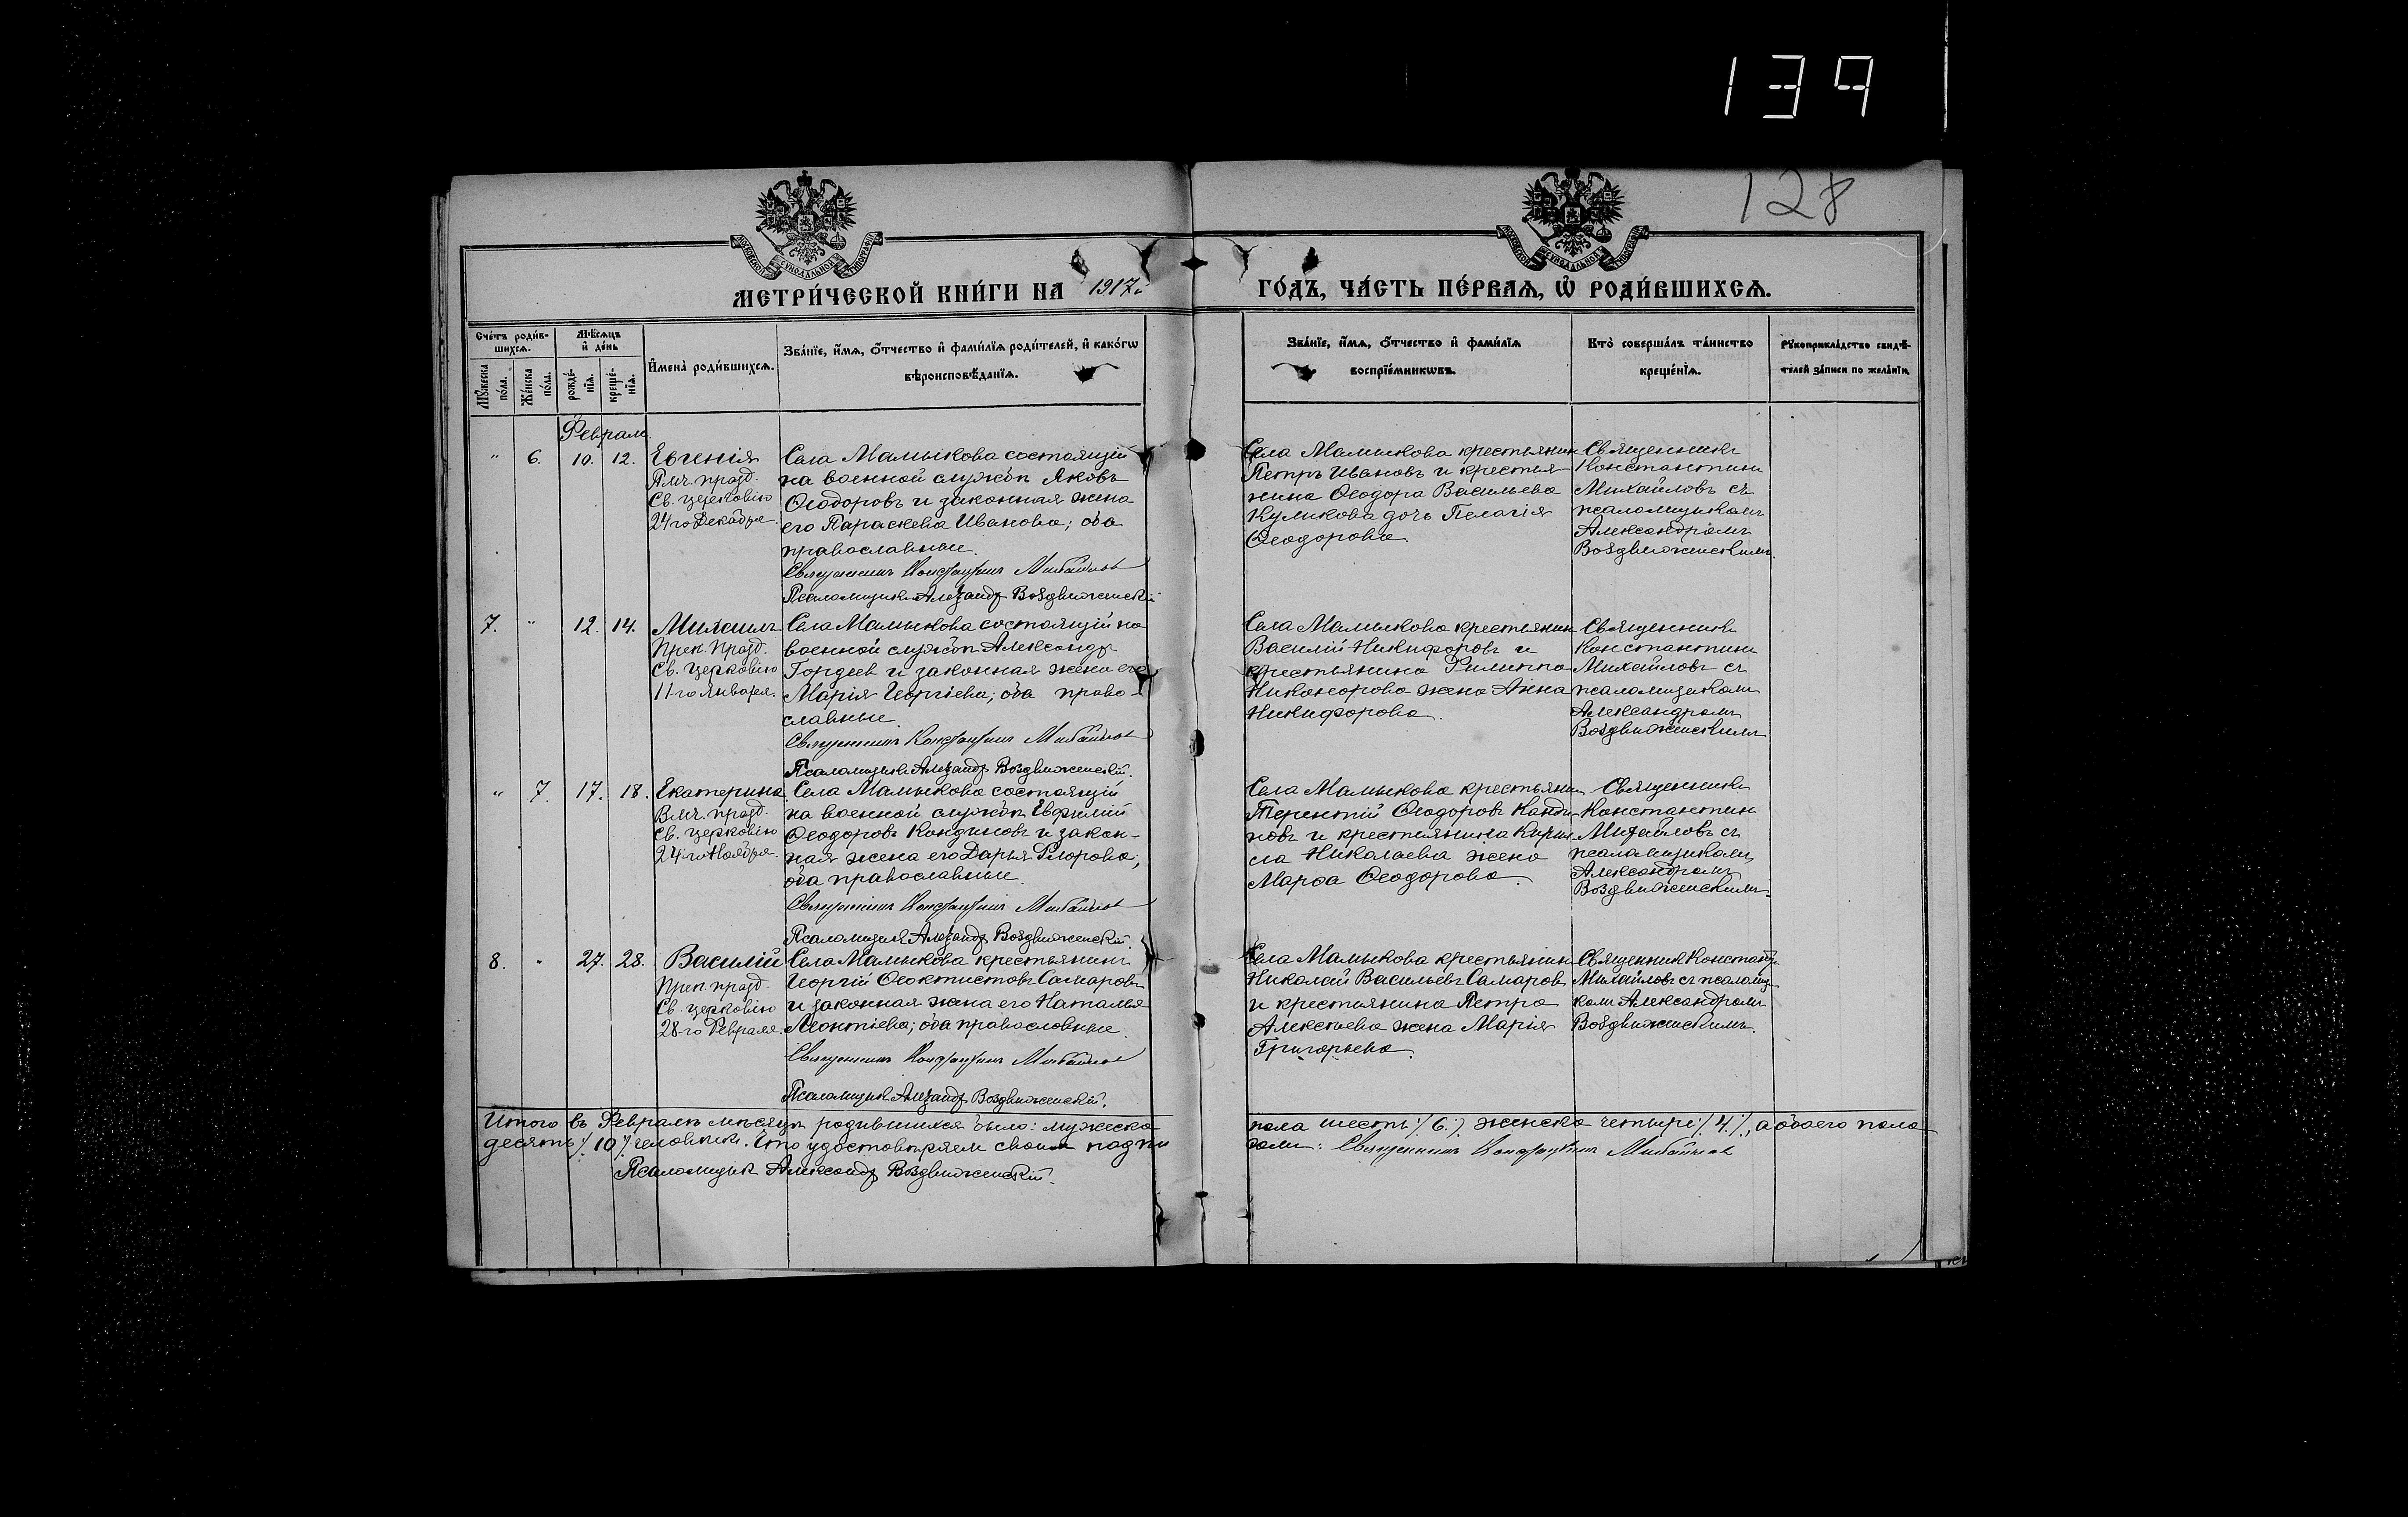 139
128
МЕТРИ́ЧЕСКОЙ КНИ́ГИ НА 1917й ГО́ДЪ, ЧА́СТЬ ПЕ́РВАЯ, Ѡ҆ РОДИ́ВШИХСЯ.
Сче́тъ роди́в-
шихся.
Мѣ́сяцъ
и҆ де́нь
Мꙋ́жеска
по́ла.
Же́нска
по́ла.
рожде́-
нїя.
креще́-
нїя.
И҆мена̀ роди́вшихся.
Зва́нїе, и҆́мя, ѻ҆́тчество и҆ фами́лїя роди́телей, и҆ како́гѡ
вѣроисповѣ́данїя.
Зва́нїе, и҆́мя, ѻ҆́тчество и҆ фами́лїя
воспрїе́мникѡвъ.
Кто̀ соверша́лъ та́инство
креще́нїя.
Рꙋкоприкла́дство свидѣ́-
телей за́писи по жела́нїю.
Февраль.
" 6. 10. 12. Евгенія
Ямч. празд.
Св. церковію
24го Декабря.
Села Мамыкова состоящій
на военной службѣ Яковъ
Ѳеодоровъ и законная жена
его Параскева Иванова; оба
православные.
Священникъ Константинъ Михайловъ
Псаломщикъ Александръ Воздвиженскій
Села Мамыкова крестьянинъ
Петръ Ивановъ и крестья-
нина Ѳеодора Васильева
Куликова дочь Пелагія
Ѳеодорова.
Священникъ
Константинъ
Михайловъ съ
псаломщикомъ
Александромъ
Воздвиженскимъ.
7. " 12. 14. Михаилъ
Преп. Празд.
Св. церковію
11го Января.
Села Мамыкова состоящій на
военной службѣ Александръ
Гордеевъ и законная жена его
Марія Георгіева; оба право-
славные.
Священникъ Константинъ Михайловъ
Псаломщикъ Александръ Воздвиженскій.
Села Мамыкова крестьянинъ
Василій Никифоровъ и
крестьянина Филиппа
Никонорова жена Анна
Никифорова.
Священникъ
Константинъ
Михайловъ съ
псаломщикомъ
Александромъ
Воздвиженскимъ
" 7. 17. 18. Екатерина
Вмч. празд.
Св. церковію
24го Ноября.
Села Мамыкова состоящій
на военной службѣ Евфимій
Ѳеодоровъ Кондиковъ и закон-
ная жена его Дарья Флорова;
оба православные.
Священникъ Константинъ Михайловъ
Псаломщикъ Александръ Воздвиженскій.
Села Мамыкова крестьянинъ
Терентій Ѳеодоровъ
и крестьянина Кирил-
ла Николаева жена
Марѳа Ѳеодорова.
Священникъ
Константинъ
Михайловъ съ
псаломщикомъ
Александромъ
Воздвиженскимъ.
8. " 27. 28. Василій
Преп. празд.
Св. церковію
28го Февраля.
Села Мамыкова крестьянинъ
Георгій Ѳеоктистовъ Самаровъ
и законная жена его Наталья
Леонтіева; оба православные.
Священникъ Константинъ Михайловъ
Псаломщикъ Александръ Воздвиженскій.
Села Мамыкова крестьянинъ
Николай Васильевъ Самаровъ
и крестьянина Петра
Алексѣева жена Марія
Григорьева.
Священникъ Константинъ
Михайловъ съ псаломщи-
комъ Александромъ
Воздвиженскимъ.
Итого въ Февралѣ мѣсяцѣ родившихся было: мужеска пола шесть /6./ женска четыре /4./, а обоего пола
десять /10/ человѣкъ. Что удостовѣряемъ своимъ подпи сомъ: Священникъ Константинъ Михайловъ
Псаломщикъ Александръ Воздвиженскій.